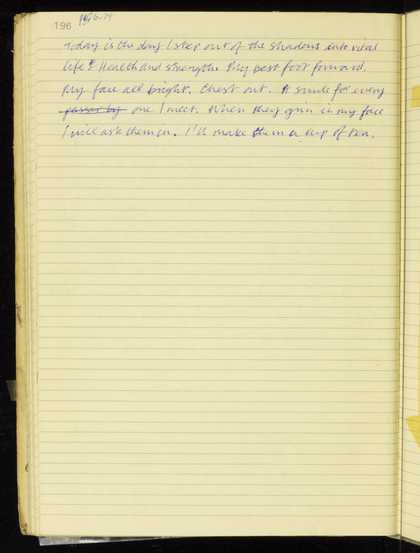 196
Today is the day I step out of the shadows into real
life & Health and strength. My best foot forward.
My face all bright. Chest out. A smile for every
passer by one I meet. When they grin in my face
I will ask them in. I'll make them a cup of tea.